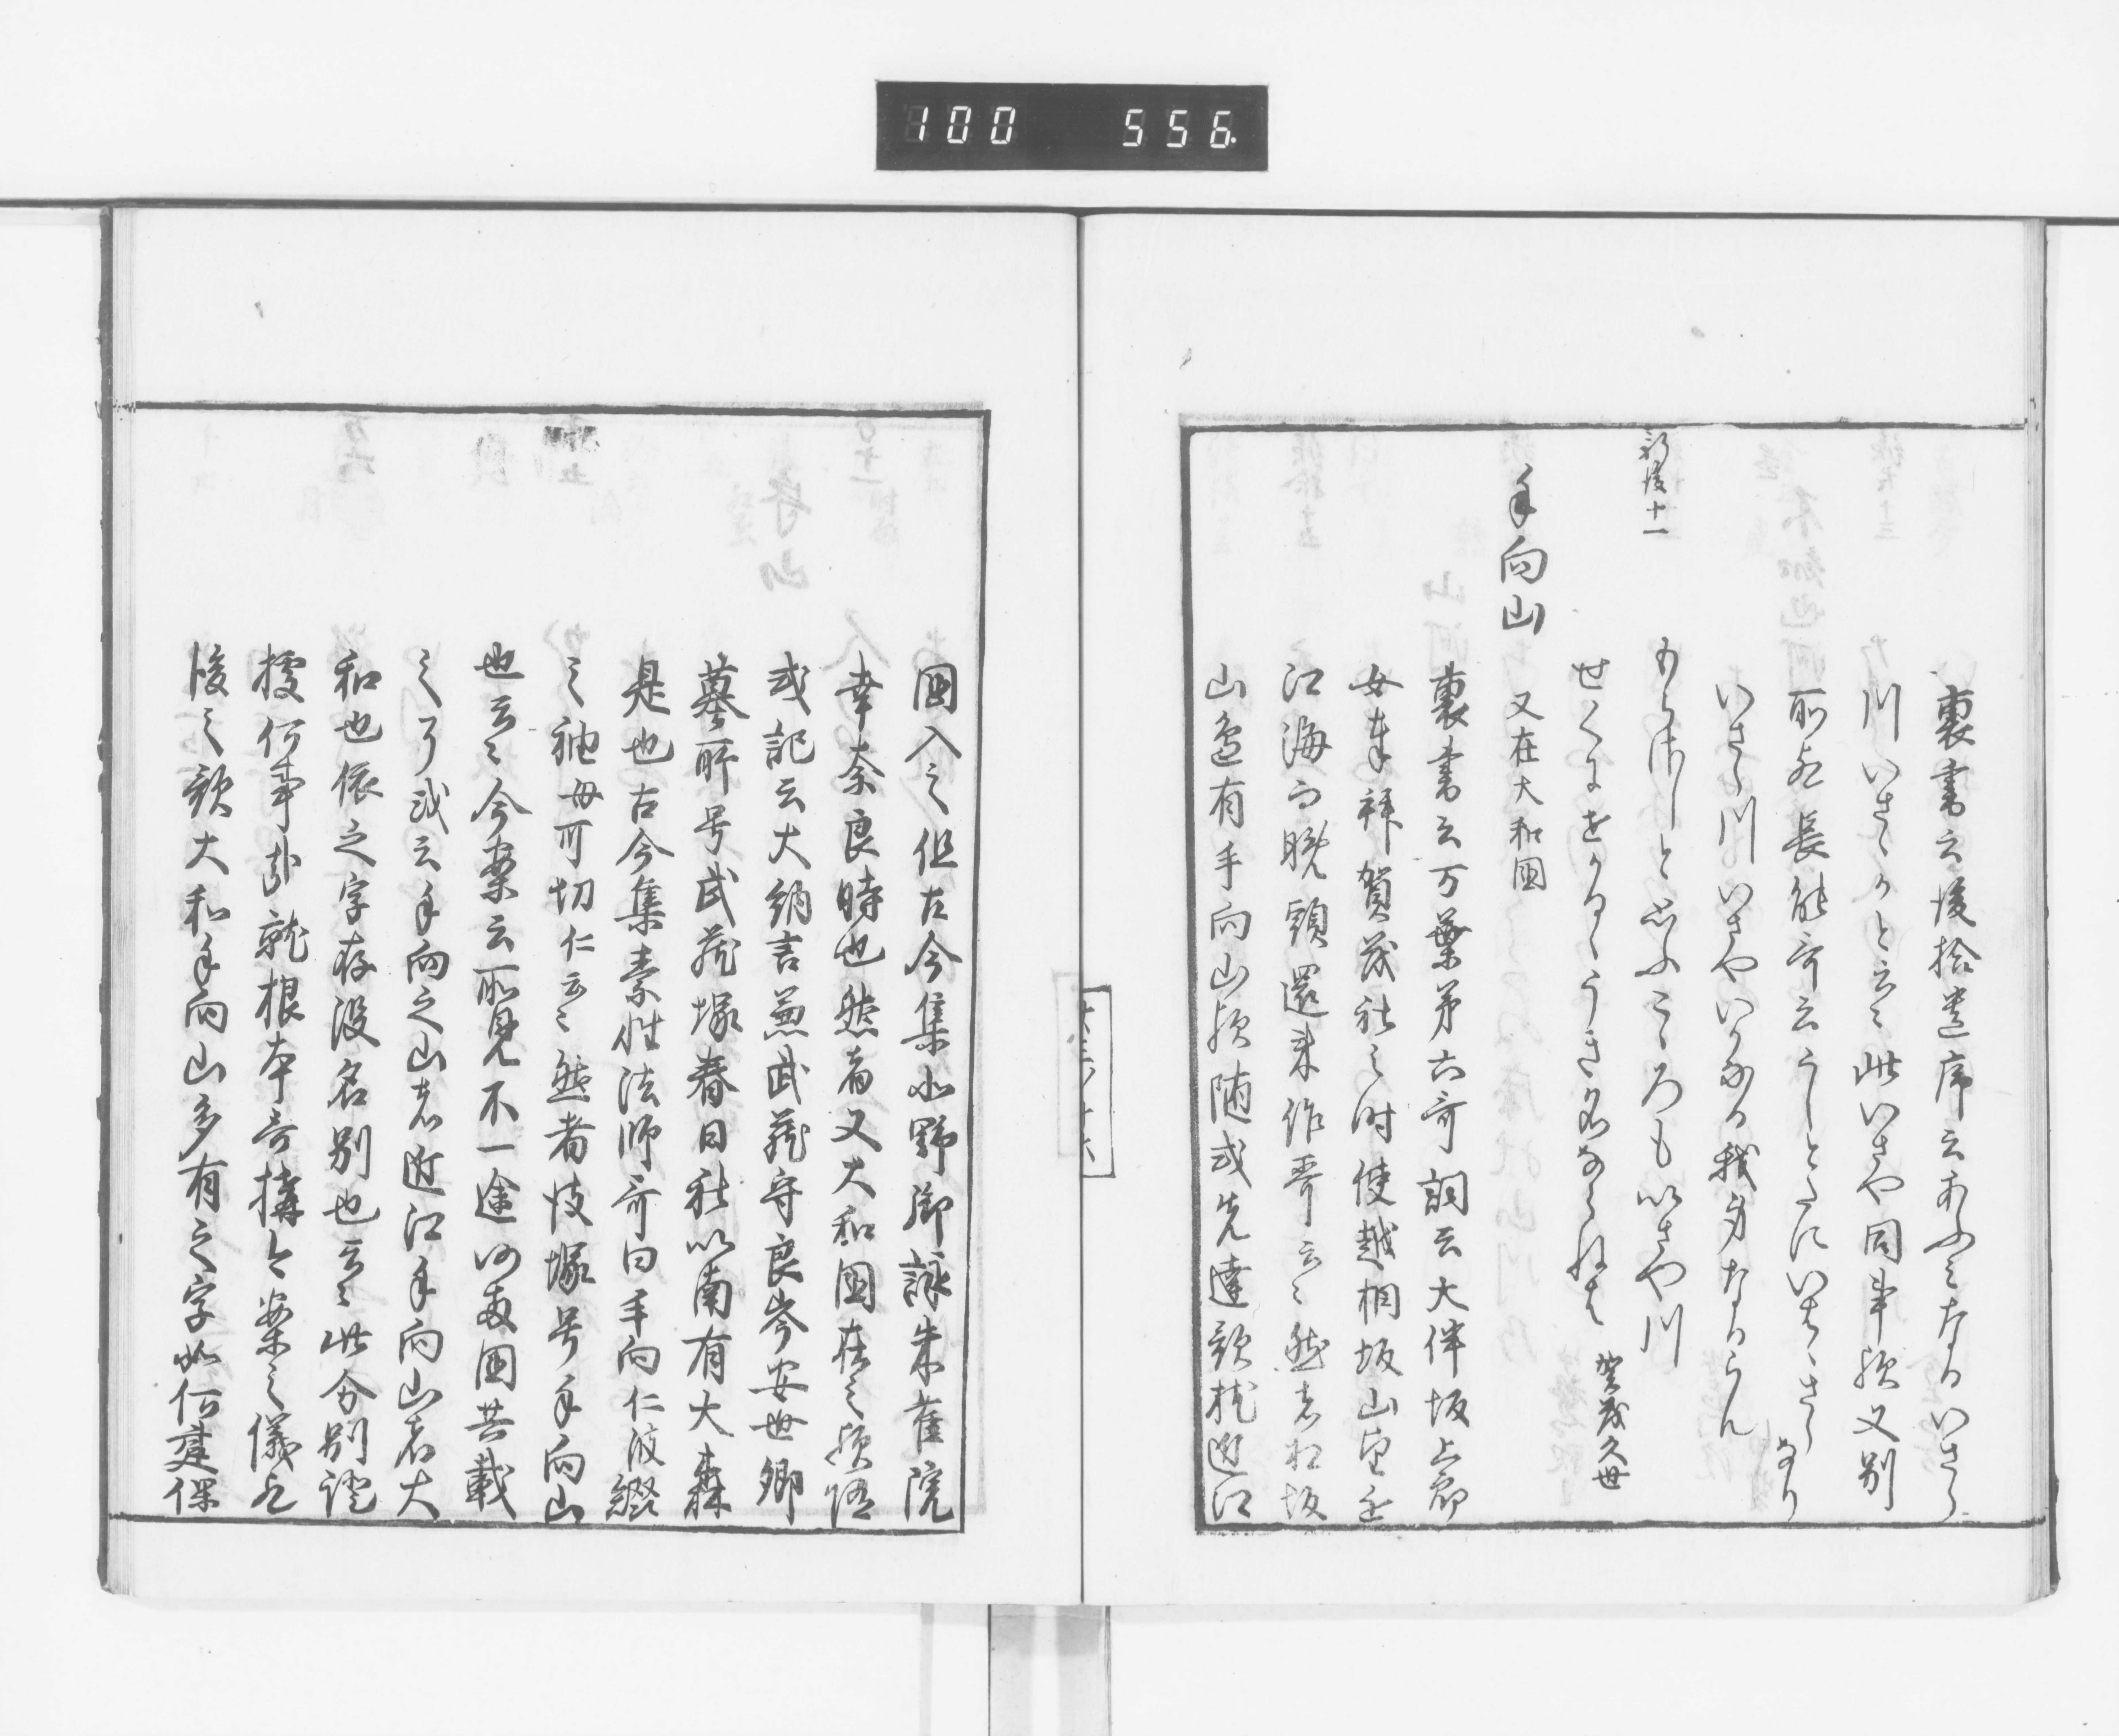 100 556
裏書云後拾遺序云あふみなるいさら
川いさゝかと云々此いさや同事歟又別
所歟長能哥云うしとたにいはゝさらなり
いさら川いさやいかなる我身なるらん
新後十一
あらはしと思ふこゝろもいさや川
せくにせかるゝうき名ならねは 賀茂久世
手向山 又在大和国
裏書云万葉第六哥詞云大伴坂上郎
女奉拝賀茂社之時便越相坂山望近
江海而晩頭還来作哥云々然者相坂
山邉有手向山歟随或先達歌枕近江
國入之但古今集北野御詠朱雀院
幸奈良時也然者又大和國在之歟隆
或記云大納言兼武蔵守良岑安世卿
墓所号武蔵塚春日社以南有大森
是也古今集素性法師哥曰手向仁波綴
之袖毋可切仁云々然者彼塚号手向山
也云々今案云所見不一途仍両国共載
之了或云手向之山者近江手向山者大
和也依之字存没名別也云々此分別證
據何事哉就根本哥構今案之儀歟
後之歌大和手向山多有之字如何建保